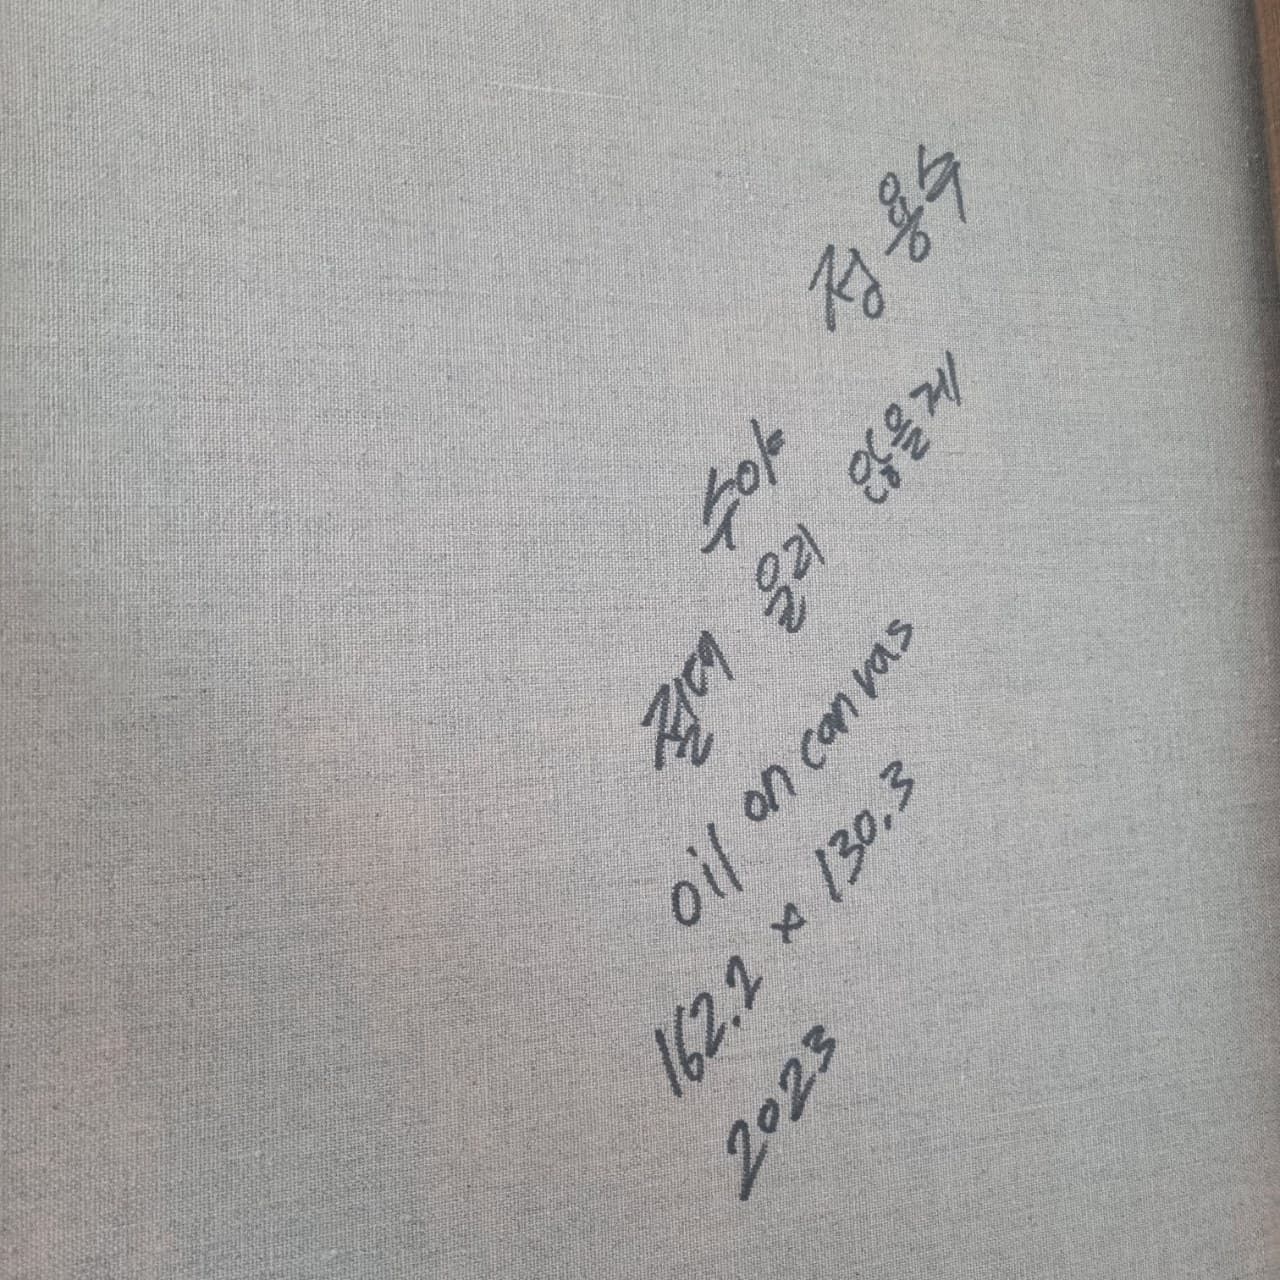 수야
절대 울지 않을게
oil on canvas
162.2 x 130.3
2023